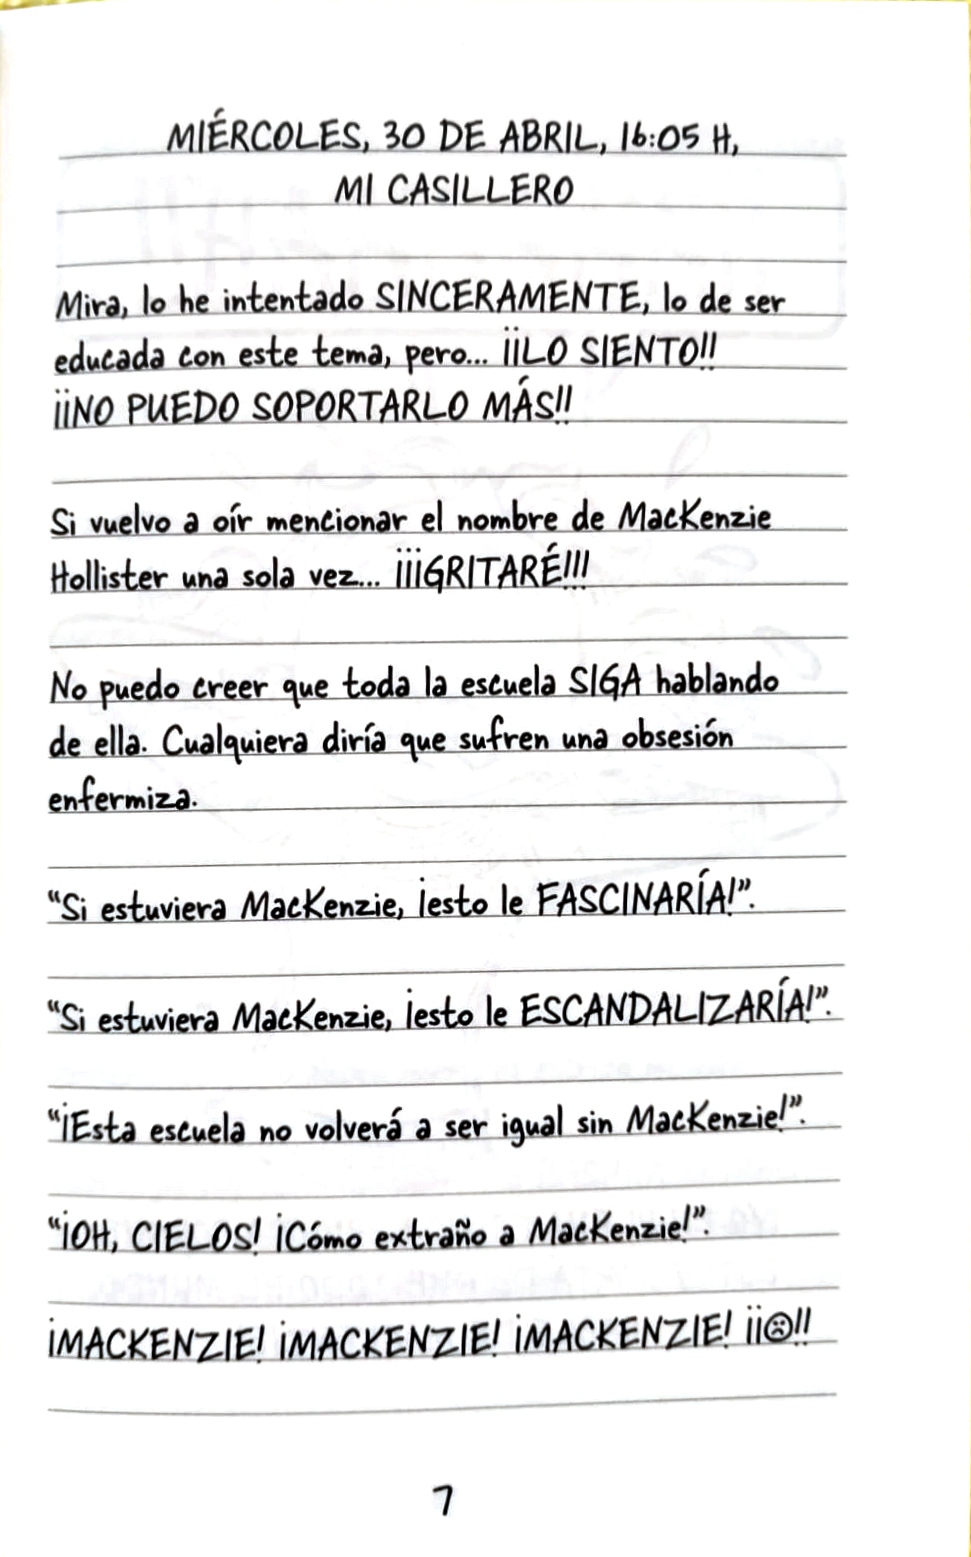 MIÉRCOLES, 30 DE ABRIL, 16:05 H,
MI CASILLERO
Mira, lo he intentado SINCERAMENTE, lo de ser
educada con este tema, pero... ¡¡LO SIENTO!!
¡¡NO PUEDO SOPORTARLO MÁS!!
Si vuelvo a oír mencionar el nombre de MacKenzie
Hollister una sola vez... ¡¡¡GRITARÉ!!!
No puedo creer que toda la escuela SIGA hablando
de ella. Cualquiera diría que sufren una obsesión
enfermiza.
“Si estuviera MacKenzie, ¡esto le FASCINARÍA!”.
“Si estuviera MacKenzie, ¡esto le ESCANDALIZARÍA!”.
“¡Esta escuela no volverá a ser igual sin MacKenzie!”.
“¡OH, CIELOS! ¡Cómo extraño a MacKenzie!”.
¡MACKENZIE! ¡MACKENZIE! ¡MACKENZIE! ¡¡☹!!
7